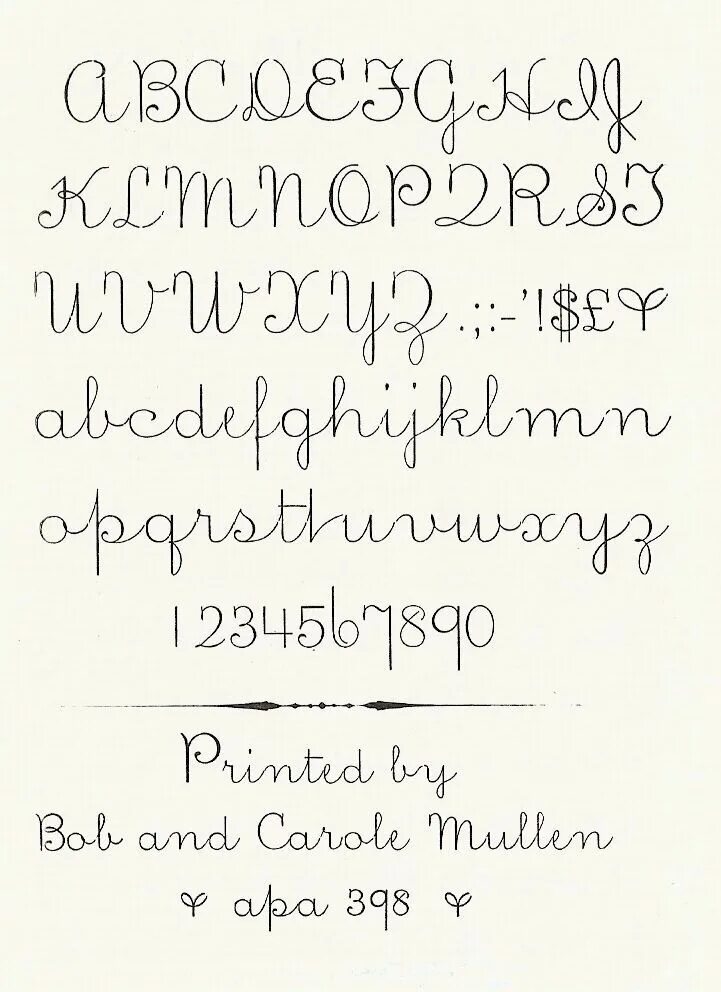 ABCDEFGHIJ
KLMNOPQRST
UVWXYZ.,;:-'!$£
abcdefghijklmn
opqrsttuvwxyz
1234567890
Printed by
Bob and Carole Mullen
apa 398